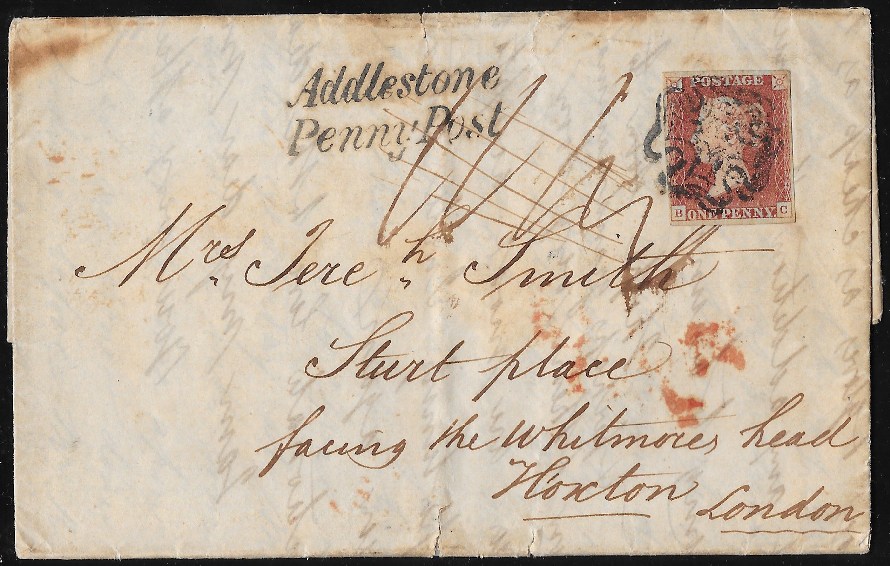 Addlestone
Penny Post
POSTAGE
B ONE PENNY C
Mrs Jereh Smith
Sturt place
facing the Whitmores head
Hoxton
London